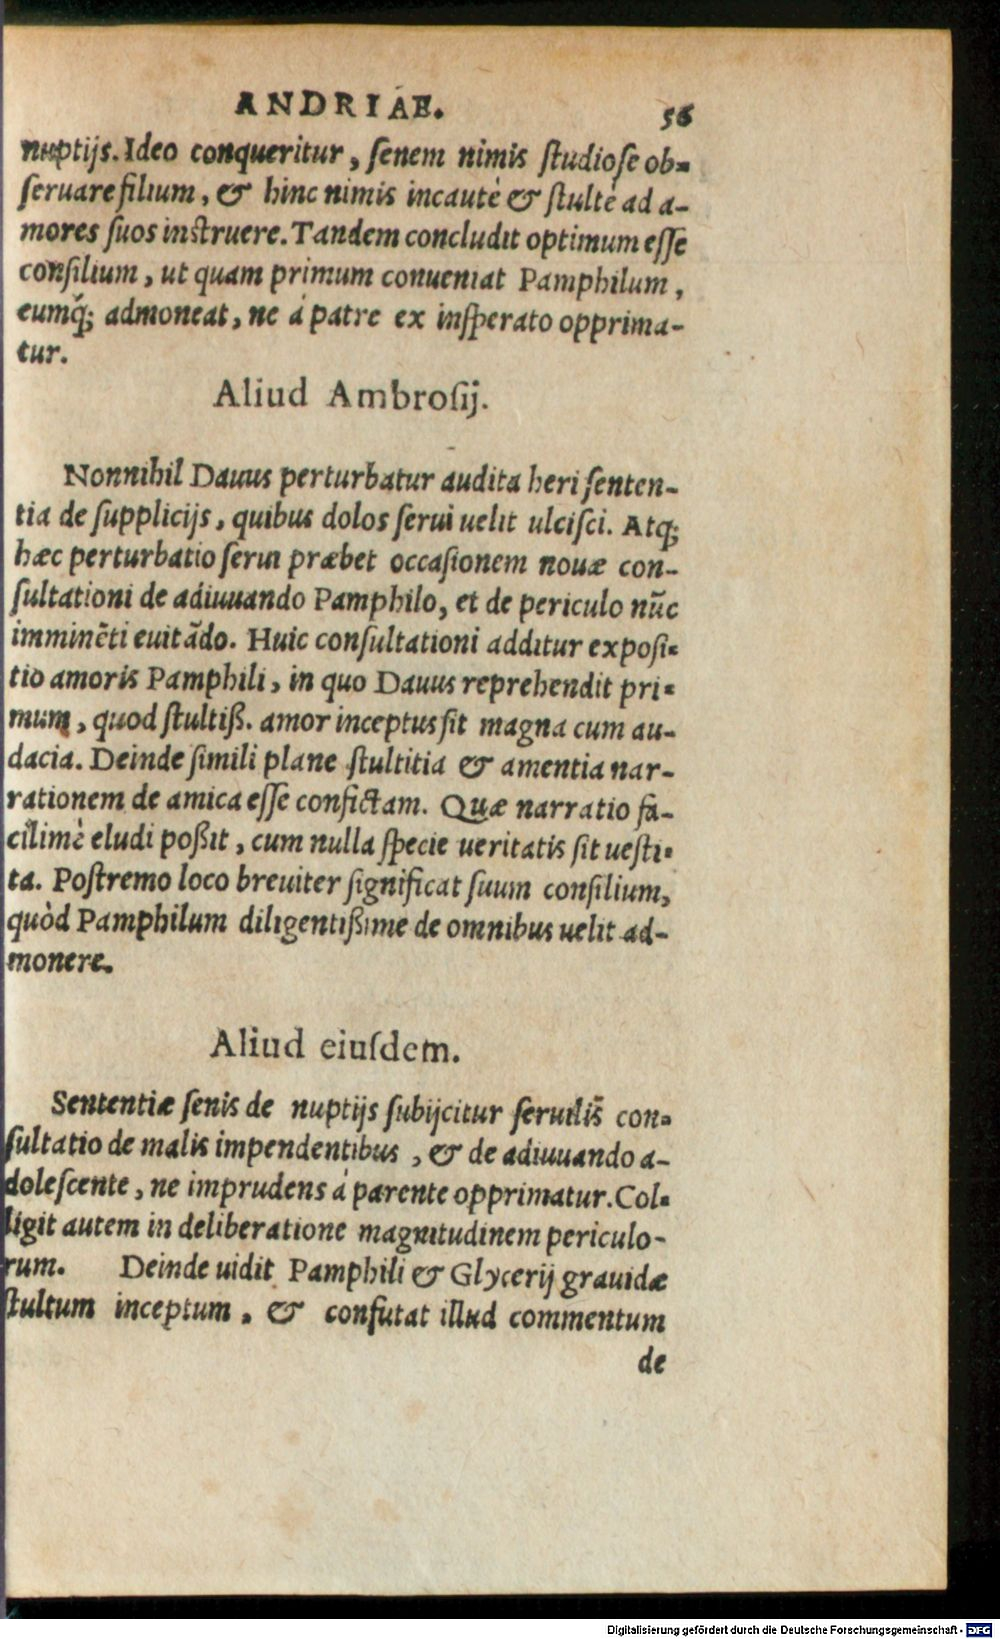 ANDRIAE. 56
nuptijs. Ideo conqueritur, ſenem nimis ſtudioſe ob-
ſeruare filium, & hinc nimis incautè & ſtultè ad a-
mores ſuos inſtruere. Tandem concludit optimum eſſe
conſilium, ut quam primum conueniat Pamphilum,
eumq́; admoneat, ne à patre ex inſperato opprima-
tur.
Aliud Ambroſij.
Nonnihil Dauus perturbatur audita heri ſenten-
tia de ſupplicijs, quibus dolos ſerui uelit ulciſci. Atq;
hæc perturbatio ſerui præbet occaſionem nouæ con-
ſultationi de adiuuando Pamphilo, et de periculo nūc
imminēti euitādo. Huic conſultationi additur expoſi-
tio amoris Pamphili, in quo Dauus reprehendit pri-
mum, quod ſtultiß. amor inceptus ſit magna cum au-
dacia. Deinde ſimili plane ſtultitia & amentia nar-
rationem de amica eſſe confictam. Quæ narratio fa-
cilimè eludi poßit, cum nulla ſpecie ueritatis ſit ueſti-
ta. Poſtremo loco breuiter ſignificat ſuum conſilium,
quòd Pamphilum diligentißime de omnibus uelit ad-
monere.
Aliud eiuſdem.
Sententiæ ſenis de nuptijs ſubijcitur ſeruilis con-
ſultatio de malis impendentibus, & de adiuuando a-
doleſcente, ne imprudens à parente opprimatur. Col-
ligit autem in deliberatione magnitudinem periculo-
rum. Deinde uidit Pamphili & Glycerij grauidæ
ſtultum inceptum, & confutat illud commentum
de
Digitalisierung gefördert durch die Deutsche Forschungsgemeinschaft - DFG